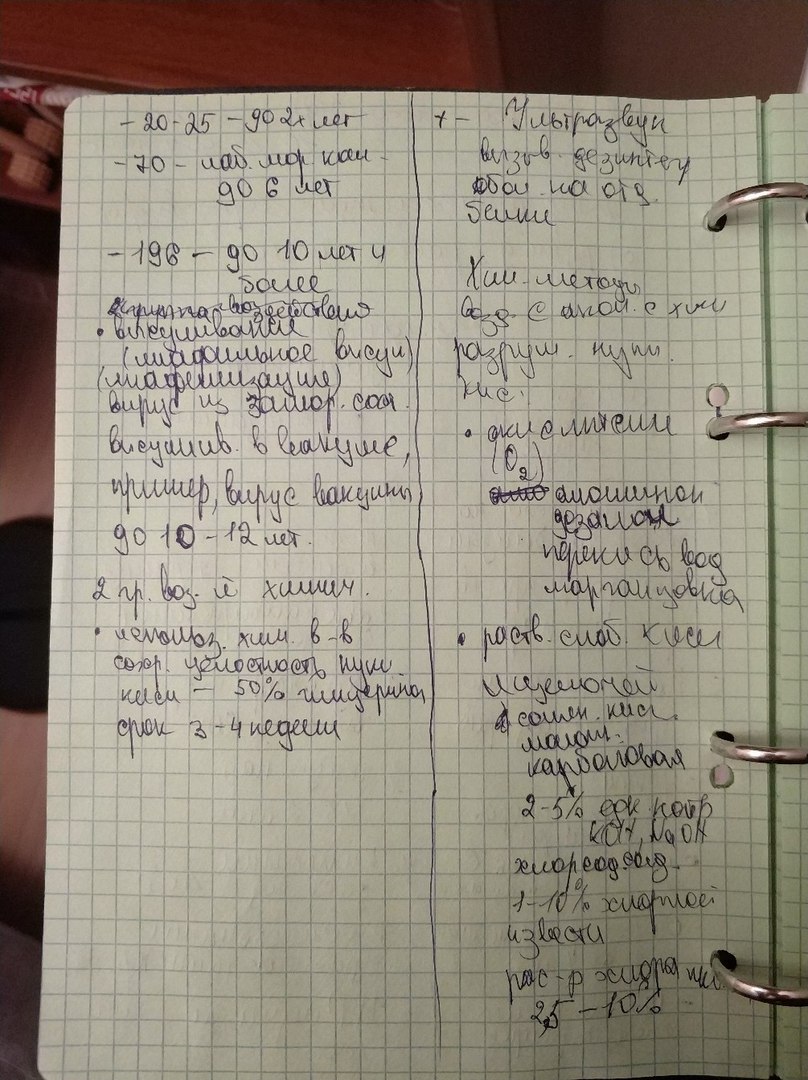 -20-25 - до 2х лет
-70 - лаб. мор. кам.
до 6 лет
-196 - до 10 лет и
более
• высушивание
(лиофильное высуш)
(лиофилизация)
вирус из замор. сост.
высушив. в вакууме,
пример, вирус вакцины
до 10-12 лет.
2 гр. воз. й химич.
• использ. хим. в-в
сохр. целостность нукл.
кисл - 50% глицерина
срок 3-4 недели
+- Ультразвук
вызыв. дезинтегр
обол. на отд.
белки
Хим. методы
возд. с хим
разруш. нукл.
кис.
• окислители
(O2)
перекись вод
марганцовка
• раств. слаб. кисл
и щелочей
солян. кисл.
молоч.
карболовая
2-5% едк натр
KOH, NaOH
хлорсод. соед.
1-10% хлорной
извести
рас-р хлора
2,5 - 10%